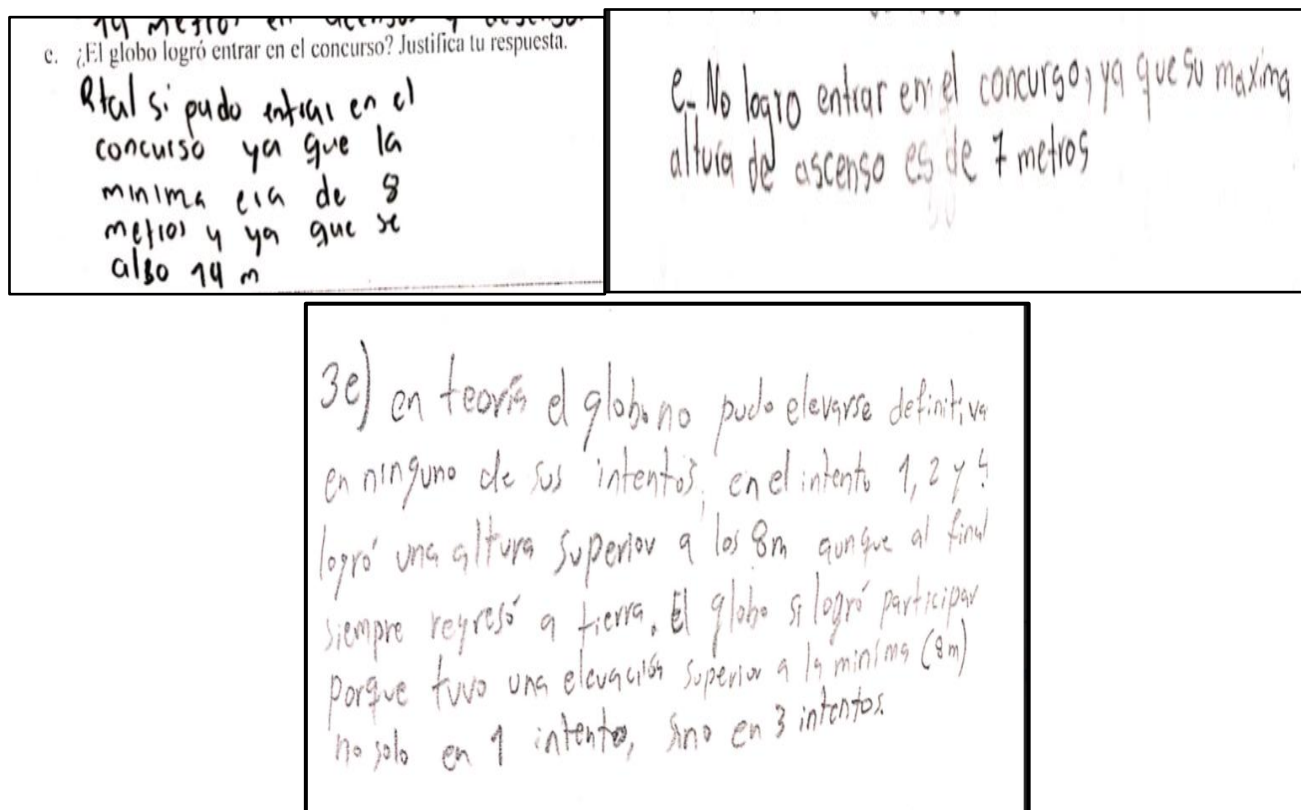 14 metros en ascenso y descenso
e. ¿El globo logró entrar en el concurso? Justifica tu respuesta.
Rtal si pudo entrar en el
concurso ya que la
minima era de 8
metros y ya que se
also 14 m
e- No logro entrar en el concurso, ya que su maxima
altura de ascenso es de 7 metros
3e) en teoría el globo no pudo elevarse definitiva
en ninguno de sus intentos, en el intento 1, 2 y
logró una altura superior a los 8m aunque al final
siempre regresó a tierra. El globo si logró participar
porque tuvo una elevación superior a la minima (8m)
no solo en 1 intento, sino en 3 intentos.